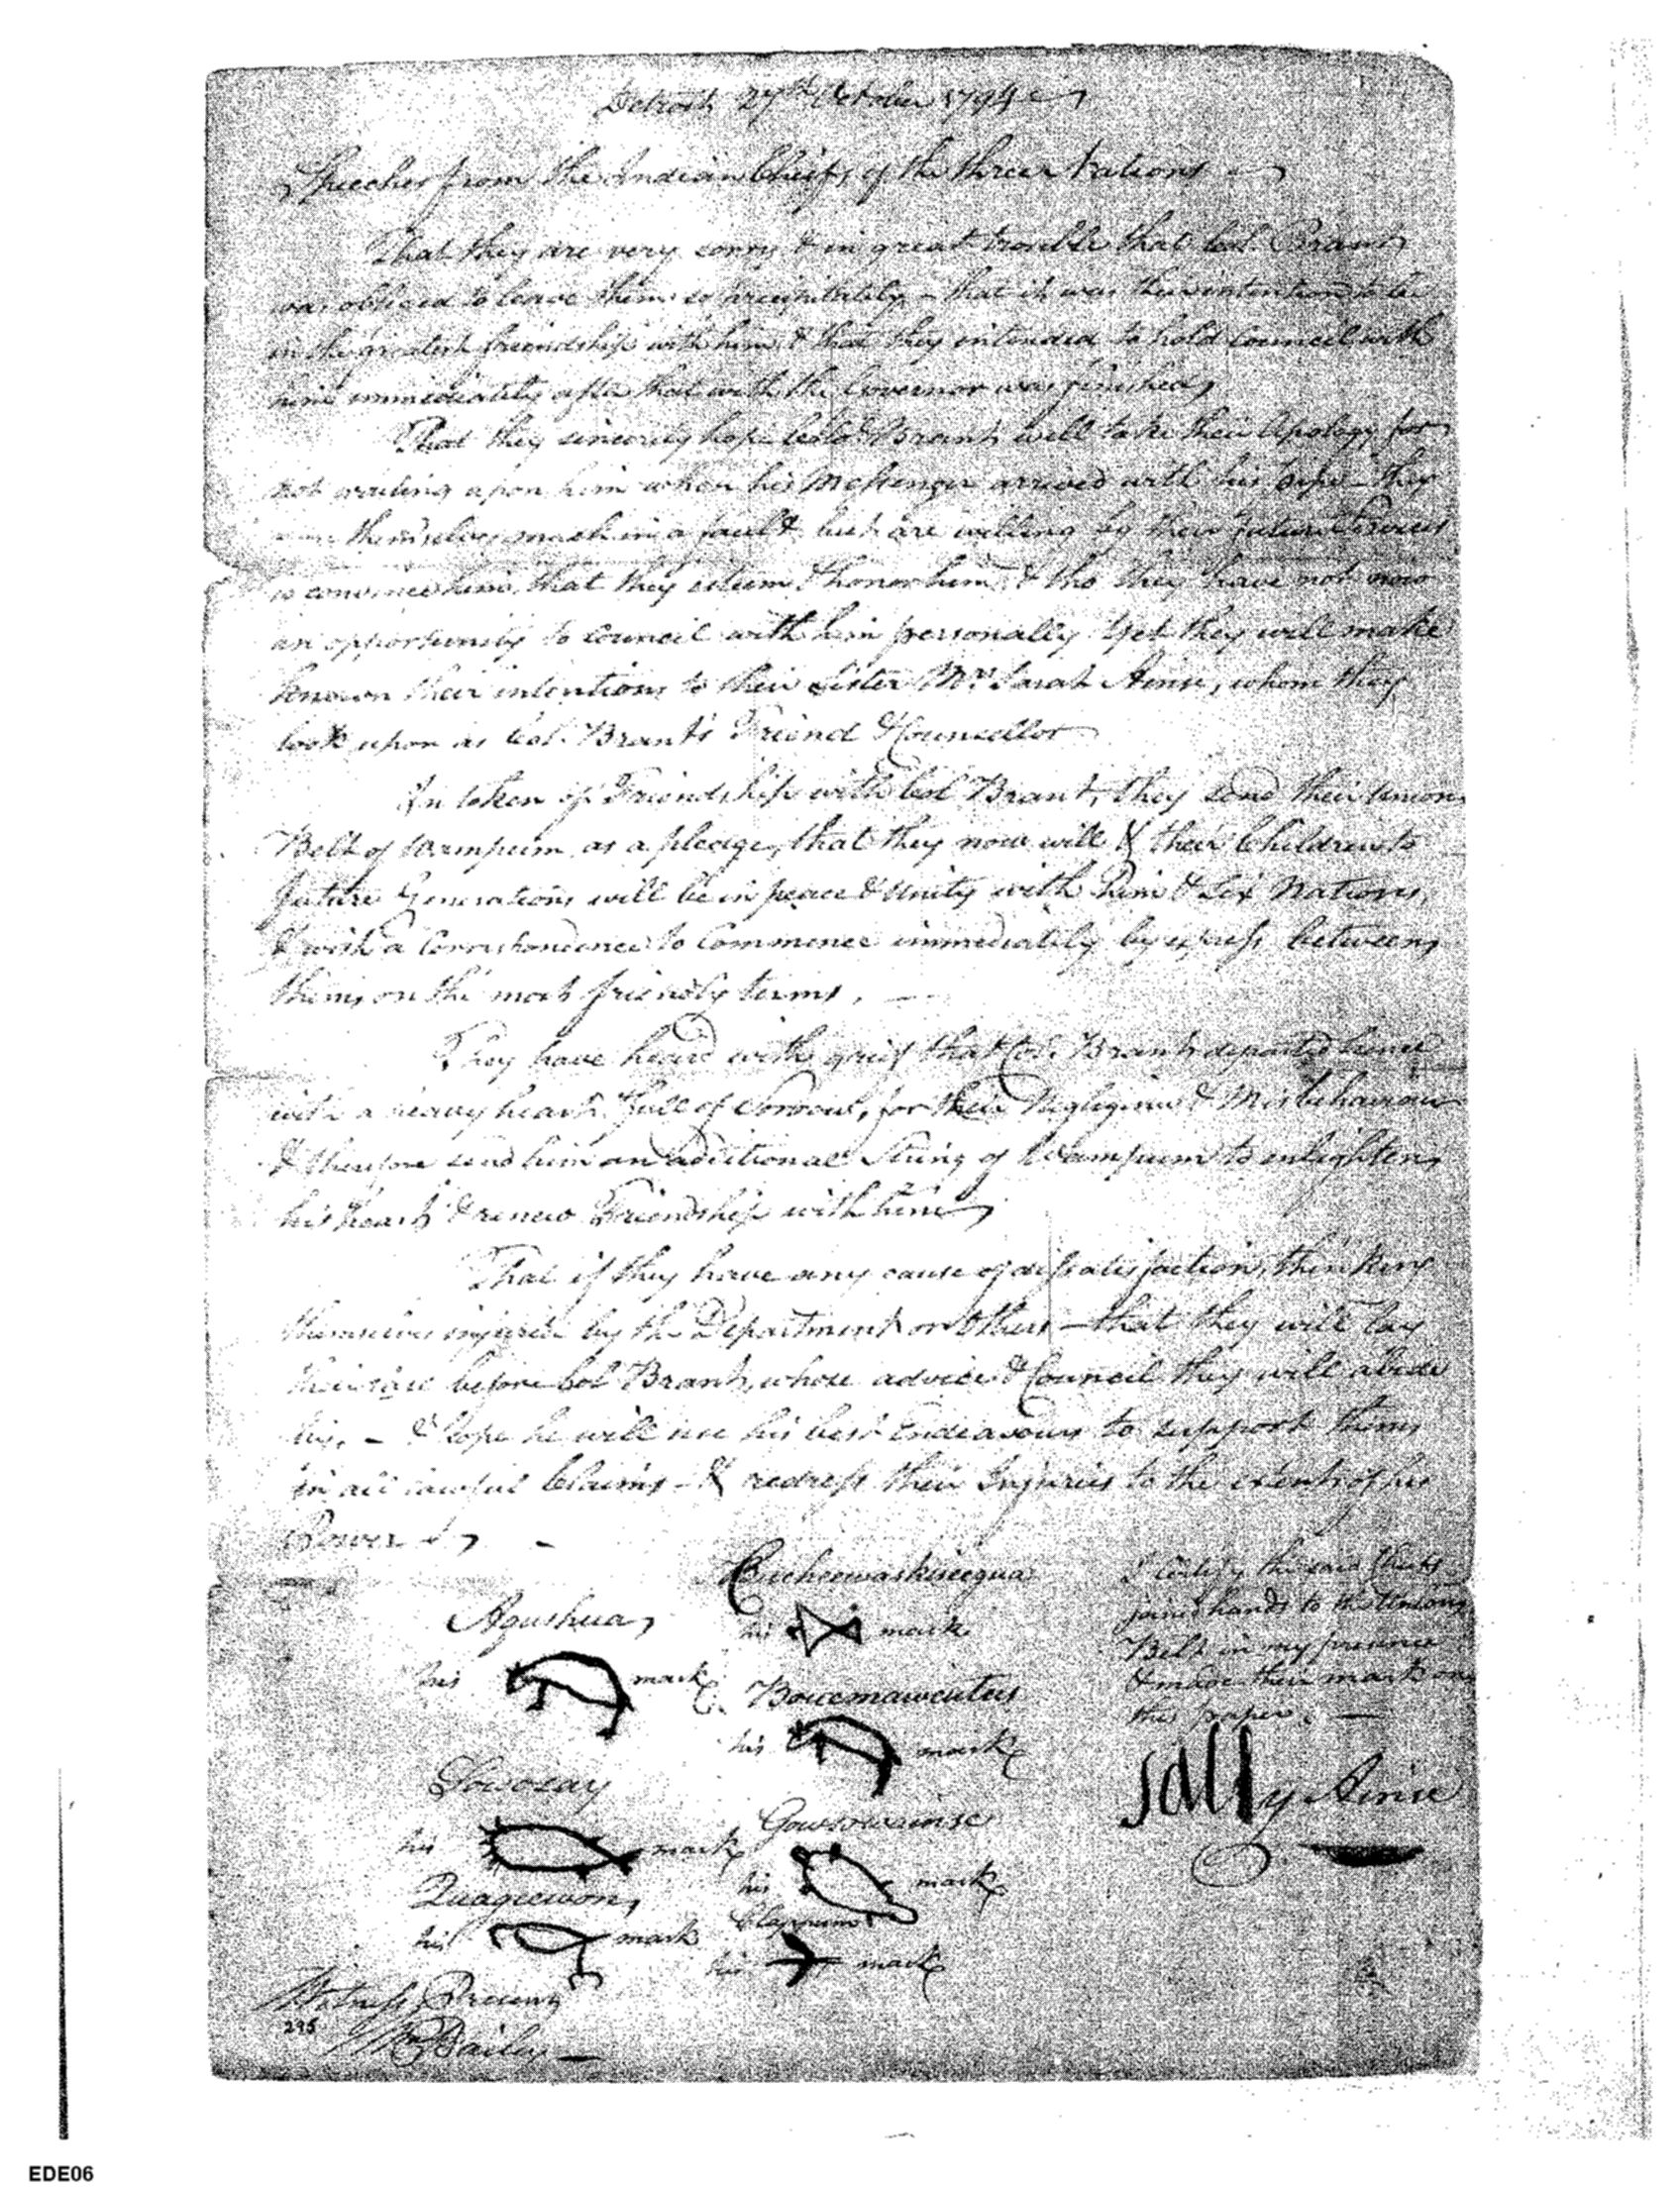 Detroit 27th October 1794
Speeches from the Indian Chiefs of the three Nations
That they are very sorry & in great trouble that Col. Brant
was obliged to leave them so precipitately - that it was their intention to be
in the greatest friendship with him & that they intended to hold Council with
him immediately after that with the Governor was finished,
That they sincerely hope Colo. Brant will take their Apology for
not waiting upon him when his Messenger arrived with his pipe - they
themselves much in a fault but are willing by their future
to convince him, that they esteem & honor him, & tho they have not now
an opportunity to Council with him personally Yet they will make
known their intentions to their Sister Mrs Sarah Ainse, whom they
look upon as Col. Brant's Friend & Councellor
In token of Friendship with Col Brant, they send their Union
Belt of Wampum as a pledge, that they now will & their Children to
future Generations will be in peace & Unity with him & Six Nations,
& wish a Correspondence to Commence immediately by express between
them, on the most friendly terms, —
They have heard with grief that Col. Brant departed hence
with a heavy heart Full of Sorrow, for their Negligence & Misbehaviour
& therefore send him an additional String of Wampum to enlighten
his heart & renew Friendship with him,
That if they have any cause of dissatisfaction, thinking
themselves injured by the Department or Others - that they will lay
their case before Col Brant, whose advice & Council they will abide
by, - & hope he will use his best Endeavours to support them
in all lawful Claims - & redress their Injuries to the extent of his
Power
Agushua
his mark
Sowoozay
his mark
Quagiewon,
his mark
his mark
his mark
his mark
his mark
I Certify the said Chiefs
joined hands to the Union
Belt in my presence
& made their mark on
this paper. —
Sally Ainse
Witness Present
295
Wm Bailey —
EDE06